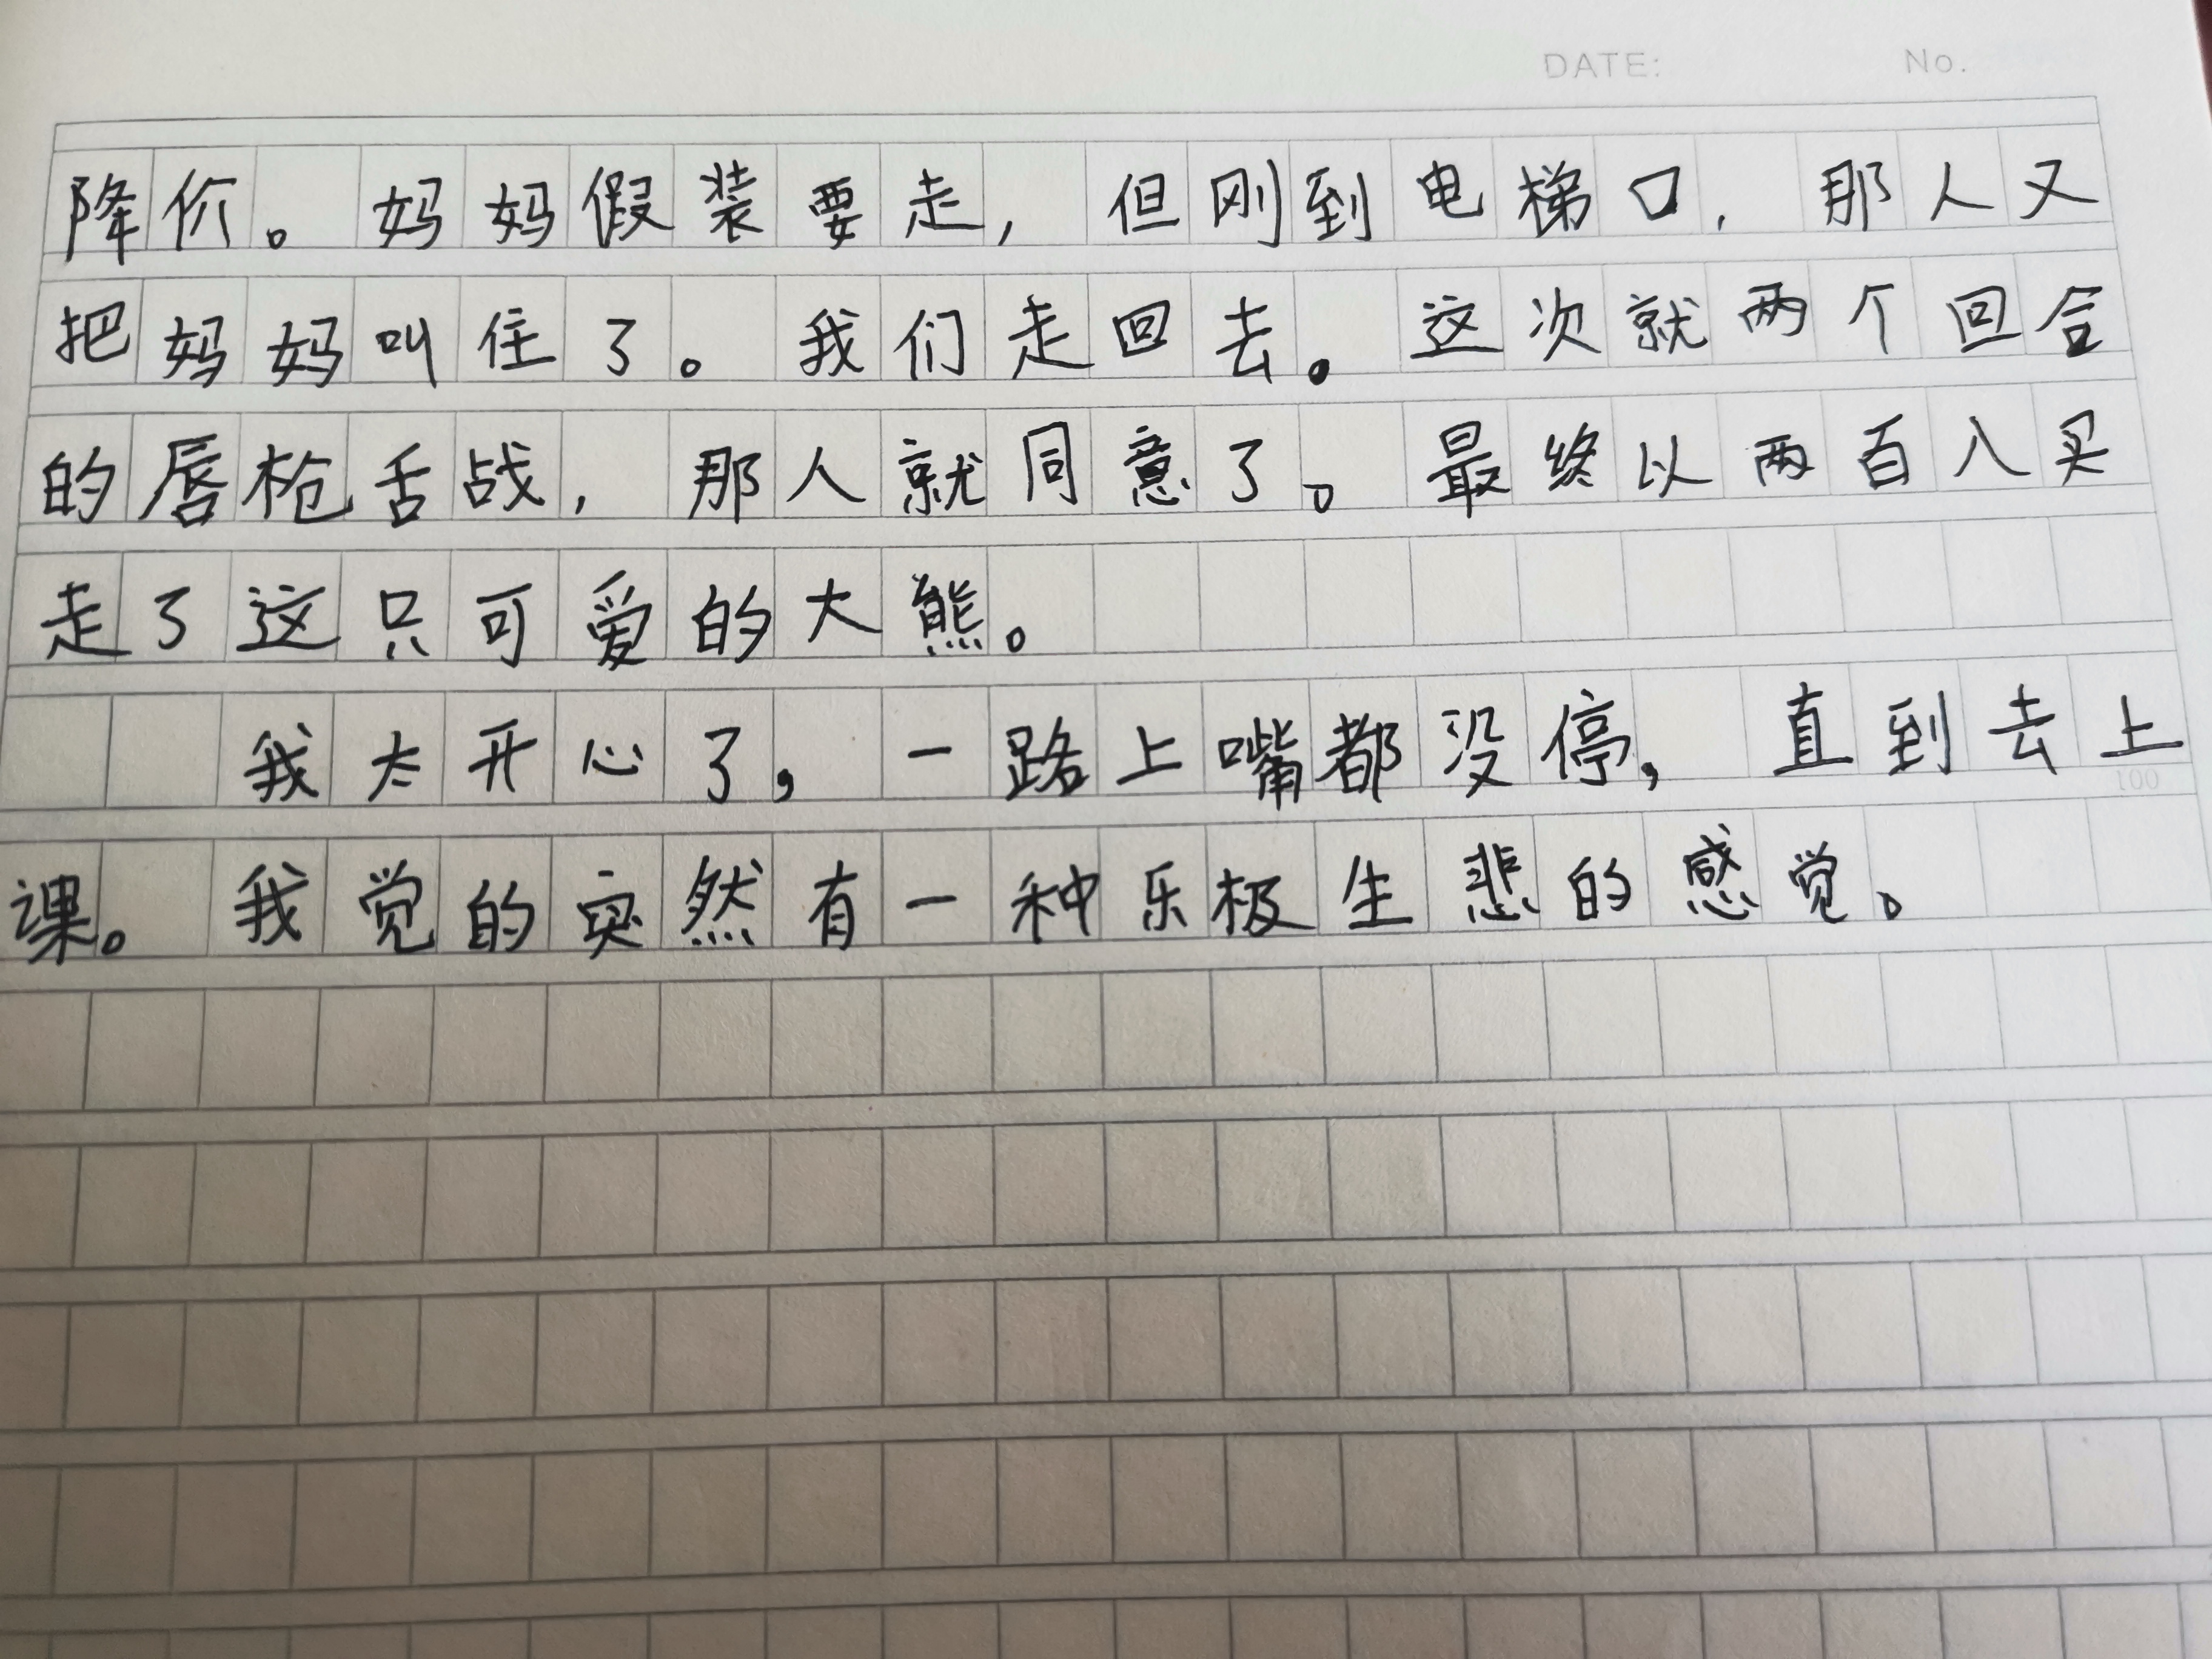 DATE: No.
降价。妈妈假装要走，但刚到电梯口，那人又
把妈妈叫住了。我们走回去。这次就两个回合
的唇枪舌战，那人就同意了。最终以两百八买
走了这只可爱的大熊。
我太开心了，一路上嘴都没停，直到去上
100
课。我觉的突然有一种乐极生悲的感觉。